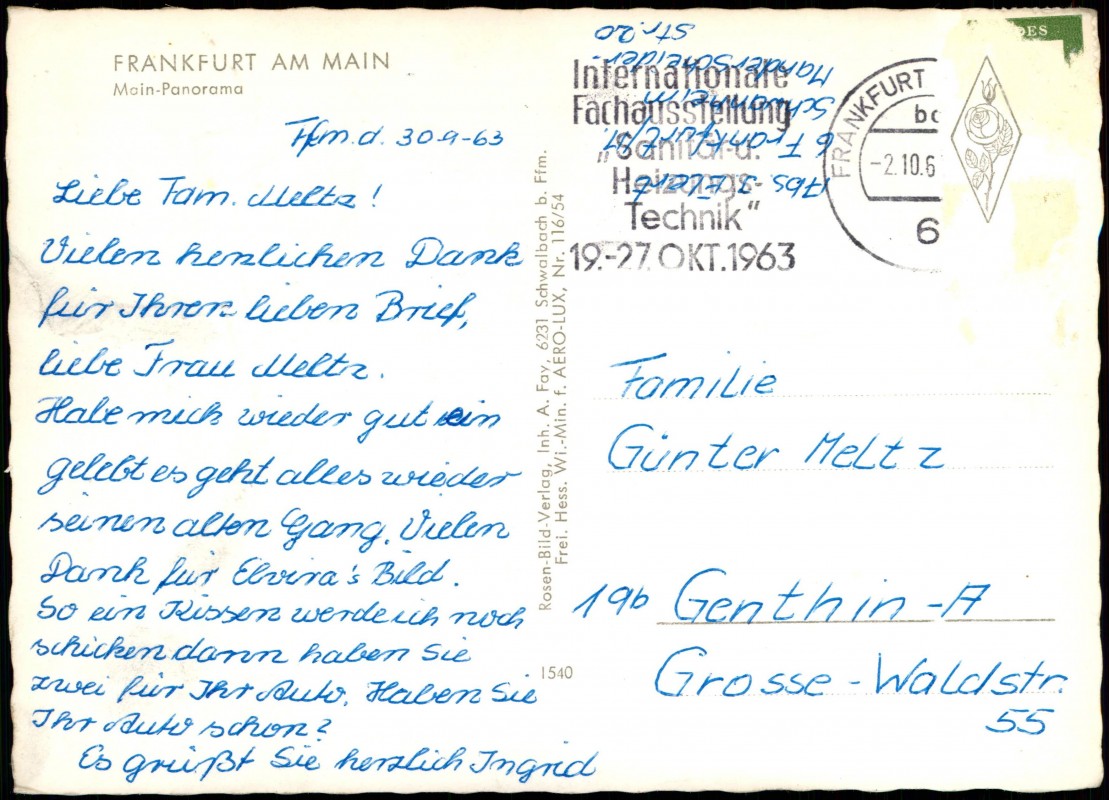 FRANKFURT AM MAIN
Main-Panorama
Ffm. d. 30-9-63
Liebe Fam. Meltz!
Vielen herzlichen Dank
für Ihren lieben Brief,
liebe Frau Meltz.
Habe mich wieder gut ein
gelebt es geht alles wieder
seinen alten Gang. Vielen
Dank für Elvira's Bild.
So ein Kissen werde ich noch
schicken dann haben Sie
zwei für Ihr Auto. Haben Sie
Ihr Auto schon?
Es grüßt Sie herzlich Ingrid
Rosen-Bild-Verlag, Inh. A. Fay, 6231 Schwalbach b. Ffm.
Frei. Hess. Wi.-Min. f. AERO-LUX, Nr. 116/54
1540
Abs. J.
6 Frankfurt/M
Schwanheim
Manderscheider-
str. 20
Internationale
Fachausstellung
„Sanitär-u.
Heizungs-
Technik“
19.-27. OKT. 1963
FRANKFURT
bc
-2.10.6
6
DES
Familie
Günter Meltz
19b Genthin-A
Grosse-Waldstr.
55